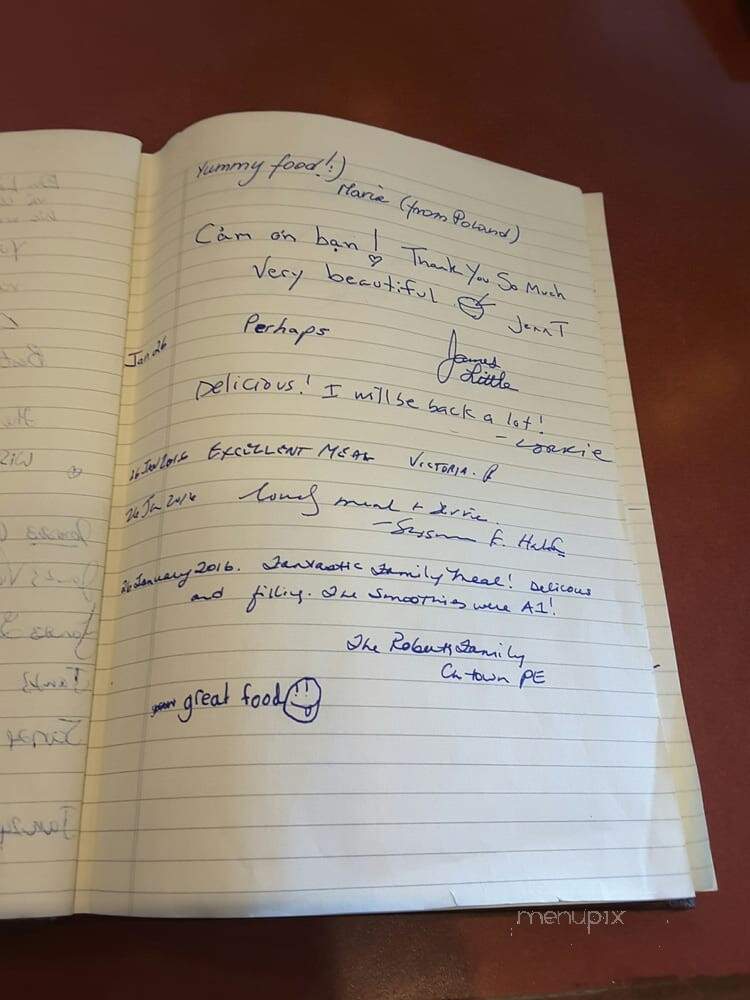 Yummy food!:)
Marie (from Poland)
Cảm ơn bạn! Thank You So Much
Very beautiful JennT
Perhaps James
Jan 26 Little
Delicious! I will be back a lot!
26 Jan 2016 EXCELLENT MEAL VICTORIA. P
26 Jan 2016 lovely meal + service.
26 January 2016. Fantastic Family meal! Delicious
and filling. The Smoothies were A1!
The Roberts Family
Ch town PE
great food
menupix